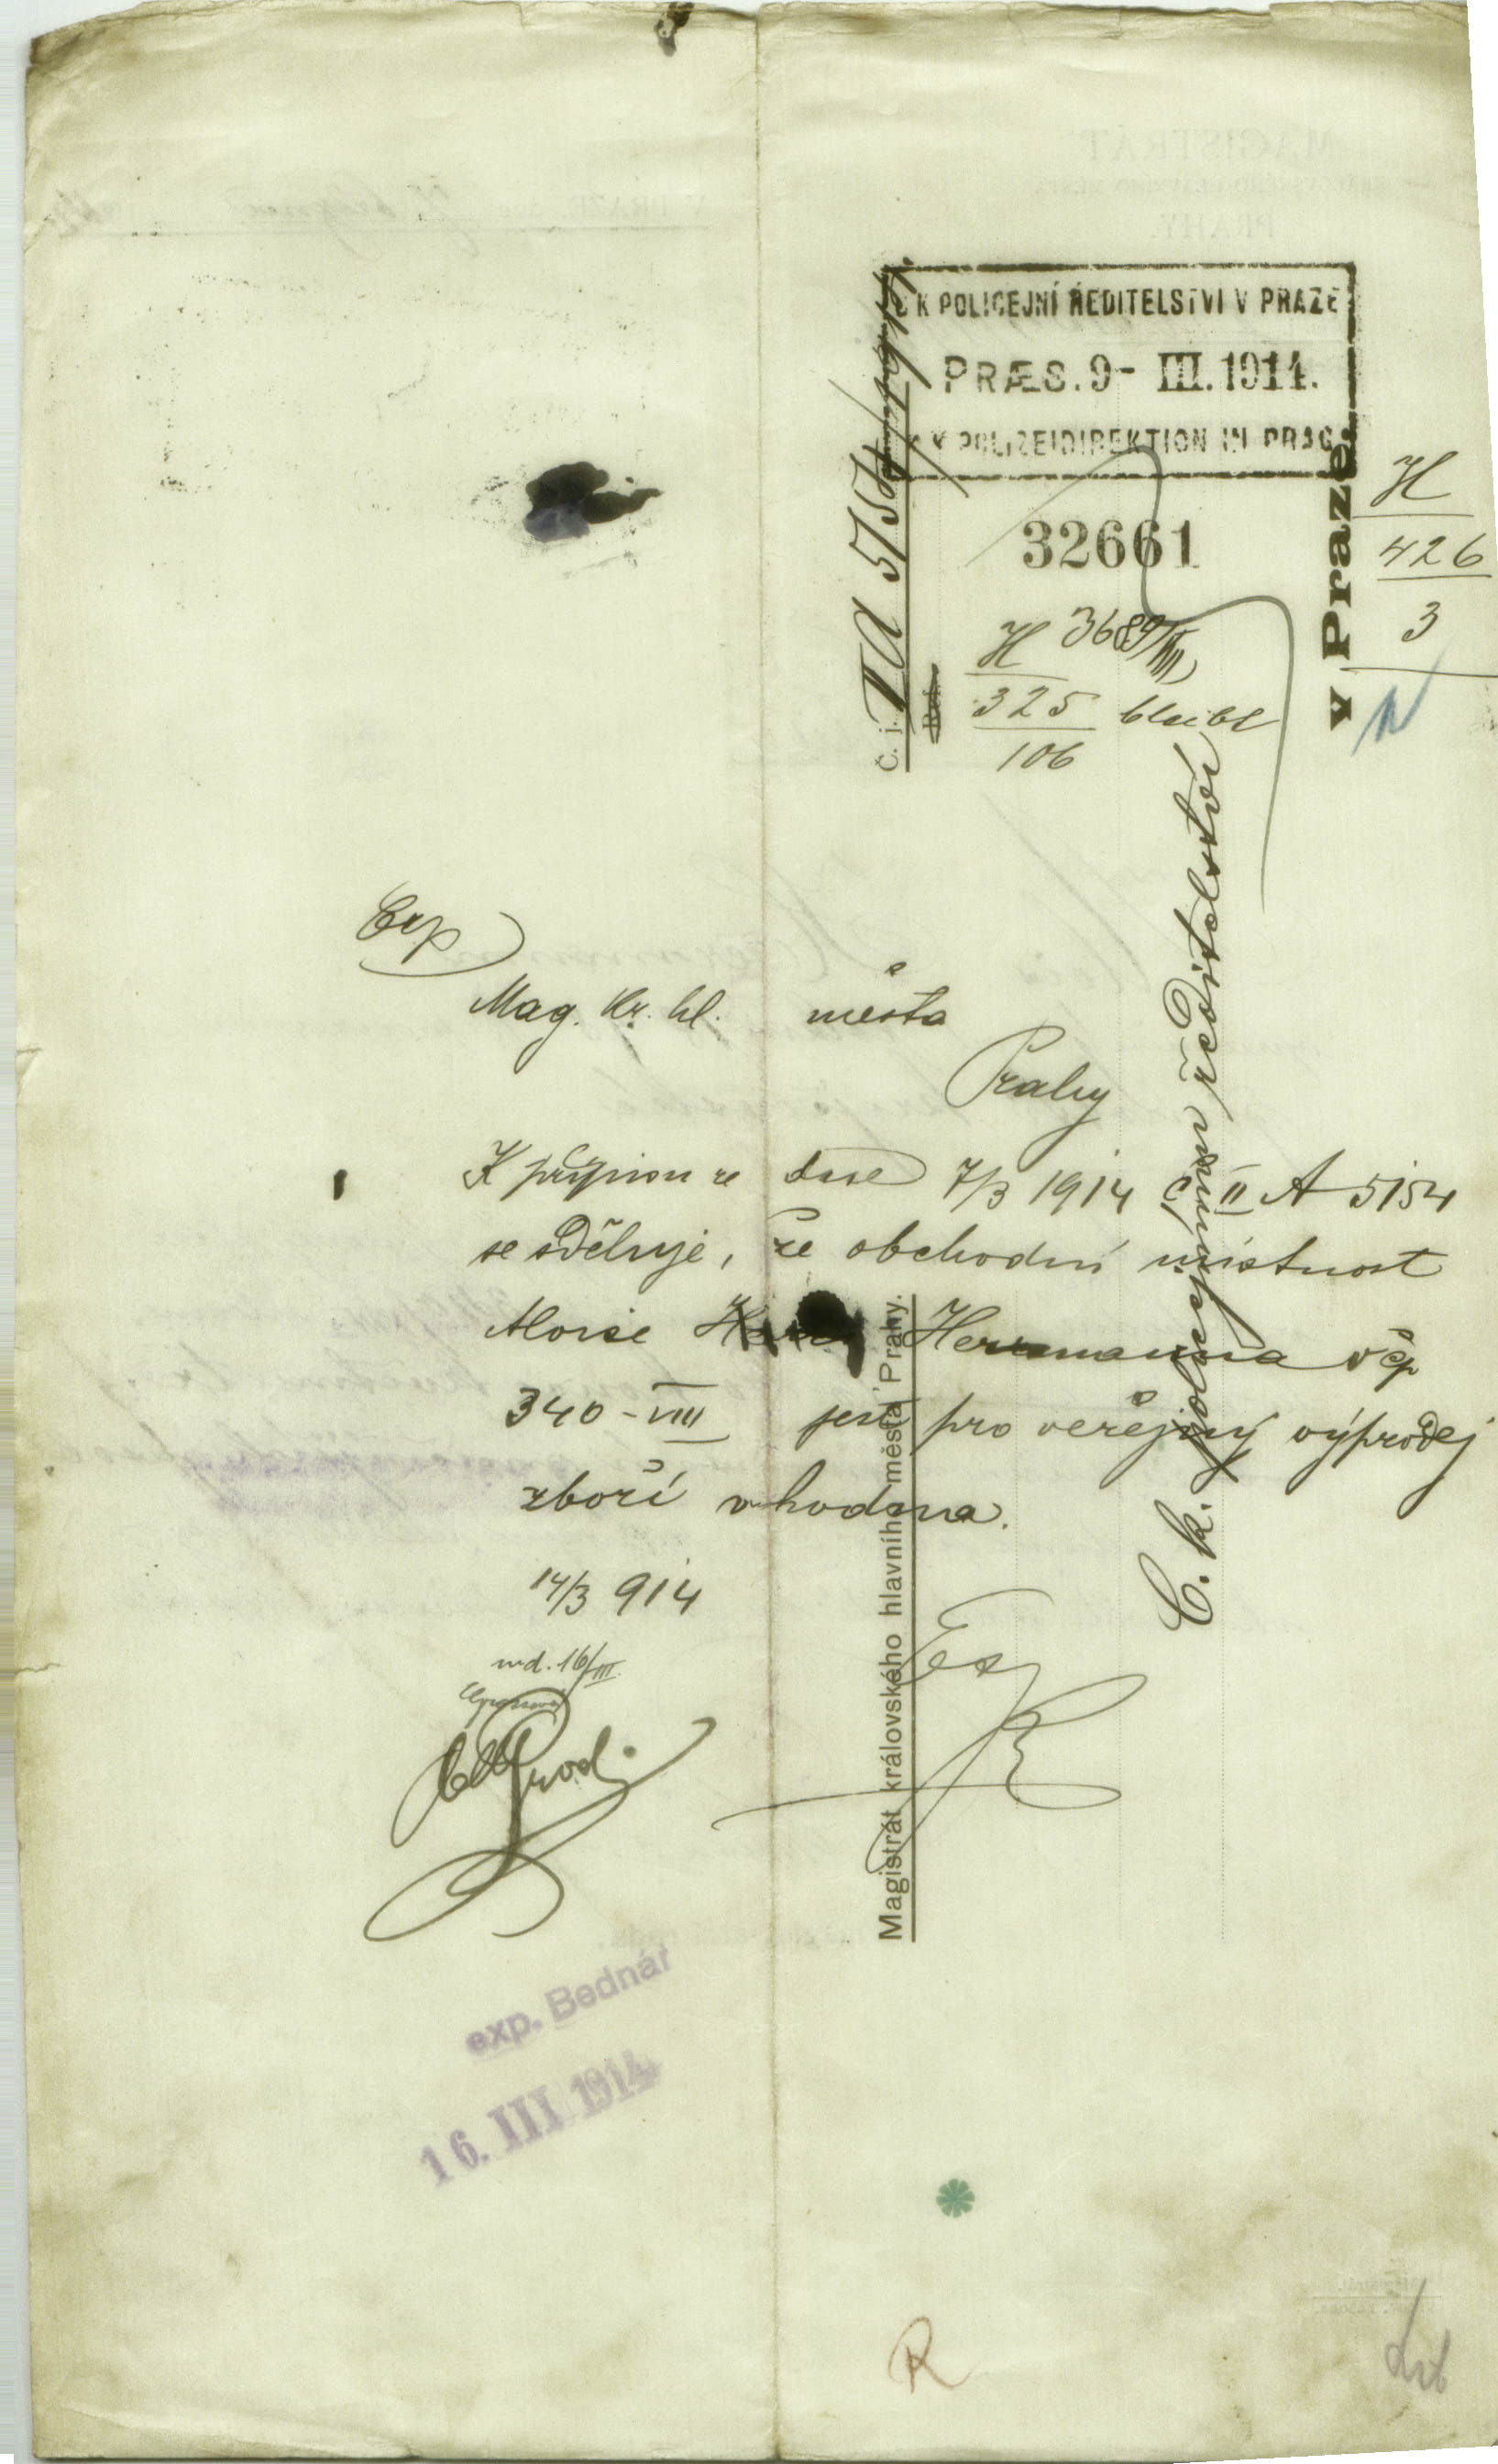 C K POLICEJNÍ ŘEDITELSTVÍ V PRAZE
PRÆS. 9- III. 1914.
K K POLIZEIDIREKTION IN PRAG
32661
H 3689/III
325 bleibt
106
H
426
3
Č. j. II A 5154/1914.
Ref.
C. k. policejnímu ředitelství
v Praze.
Magistrát královského hlavního města Prahy.
Exp
Mag. kr. hl. města
Prahy
K přípisu ze dne 7/3 1914 č II A 5154
se sděluje, že obchodní místnost
Aloise Herrmanna v čp
340-VIII jest pro veřejný výprodej
zboží vhodna.
14/3 914
16/III
exp. Bednář
16. III 1914
R